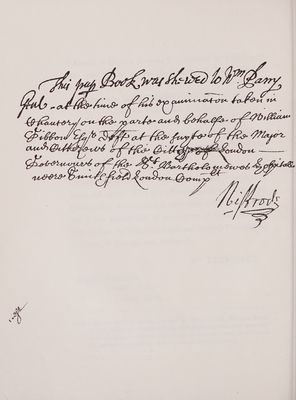 This pap Book was shewed to Wm Parry
Gent - at the time of his examinacon taken in
Chancery on the parte and behalfe of William
Gibbon Esqr Deft at the suyte of the Maior
and Cittizens of the Citty of London
Governours of the St Bartholomewes Hospitall
neere Smithfield London Compts